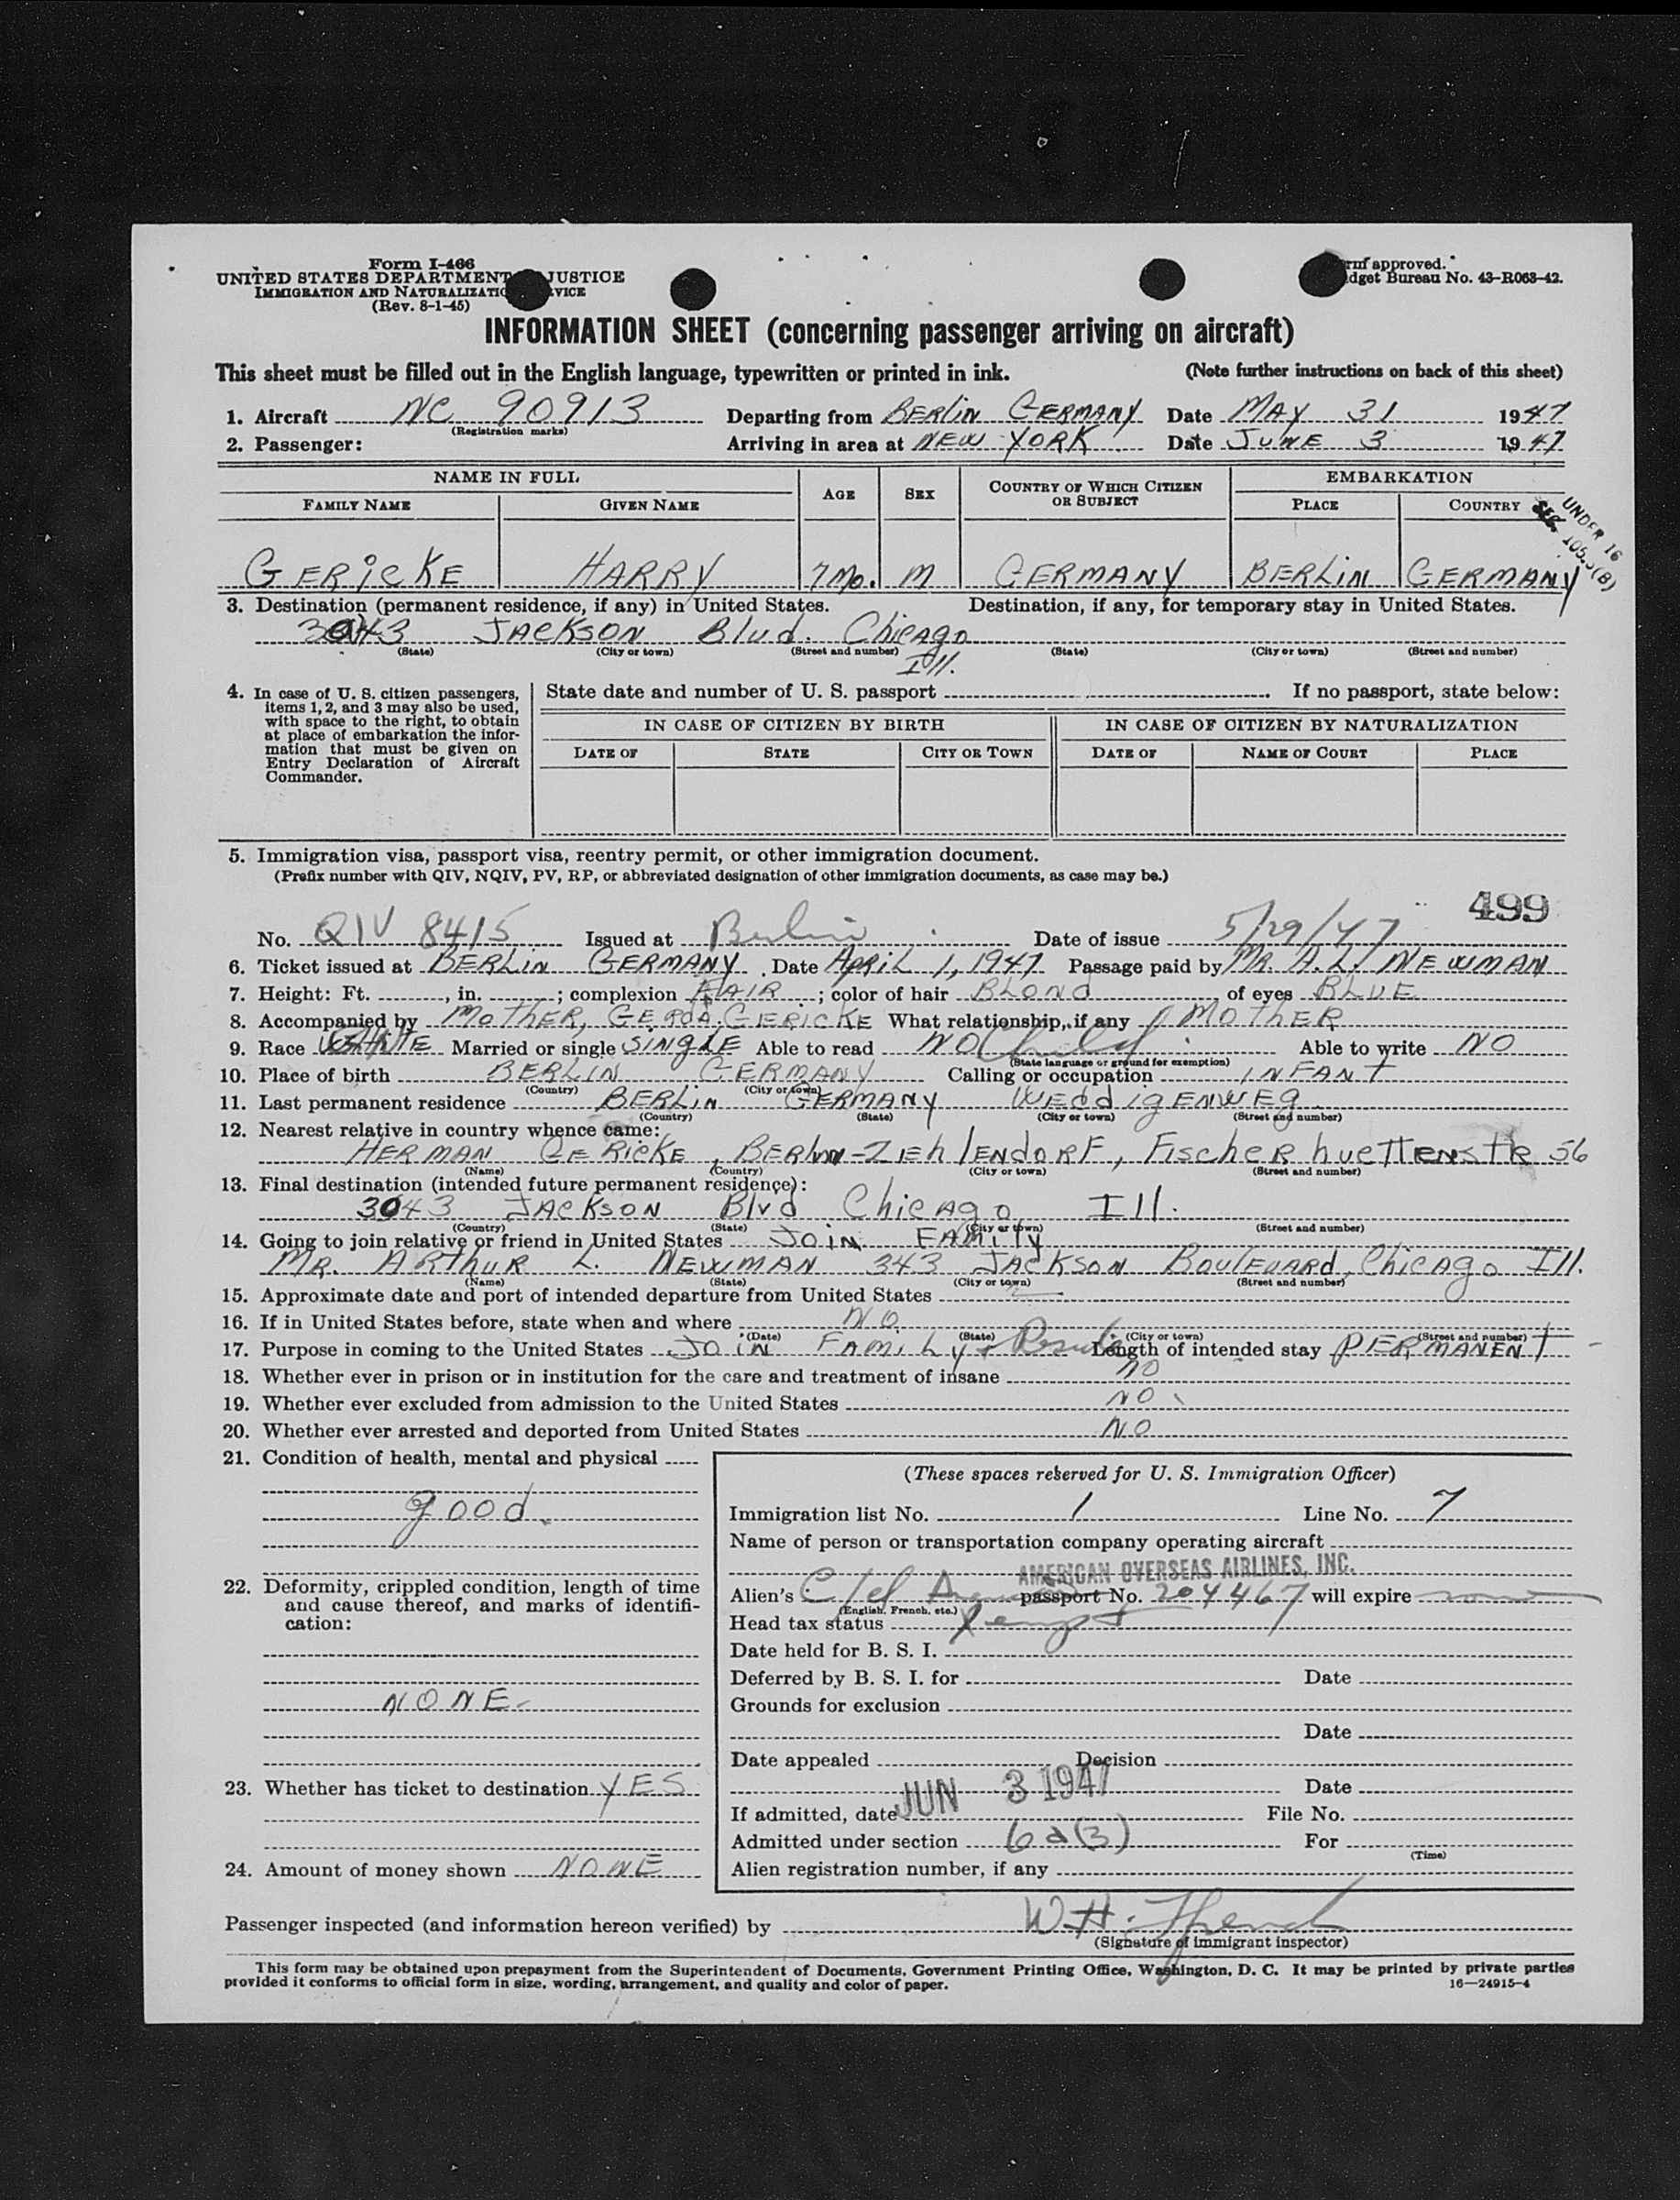 Form I-466
UNITED STATES DEPARTMENT JUSTICE
IMMIGRATION AND NATURALIZATIO VICE
(Rev. 8-1-45)
rm approved.
dget Bureau No. 43-R063-42.
INFORMATION SHEET (concerning passenger arriving on aircraft)
This sheet must be filled out in the English language, typewritten or printed in ink. (Note further instructions on back of this sheet)
1. Aircraft NC 90913 Departing from BERLIN GERMANY Date MAY 31 1947
(Registration marks)
2. Passenger: Arriving in area at NEW YORK Date JUNE 3 1947
NAME IN FULL AGE SEX COUNTRY OF WHICH CITIZEN OR SUBJECT EMBARKATION
FAMILY NAME GIVEN NAME PLACE COUNTRY
UNDER 16
SEC. 105.3(B)
GERICKE HARRY 7 Mo. M GERMANY BERLIN GERMANY
3. Destination (permanent residence, if any) in United States. Destination, if any, for temporary stay in United States.
3043 JACKSON Blvd. Chicago
(State) (City or town) (Street and number) (State) (City or town) (Street and number)
Ill.
4. In case of U. S. citizen passengers, items 1, 2, and 3 may also be used, with space to the right, to obtain at place of embarkation the information that must be given on Entry Declaration of Aircraft Commander.
State date and number of U. S. passport . If no passport, state below:
IN CASE OF CITIZEN BY BIRTH IN CASE OF CITIZEN BY NATURALIZATION
DATE OF STATE CITY OR TOWN DATE OF NAME OF COURT PLACE
5. Immigration visa, passport visa, reentry permit, or other immigration document.
(Prefix number with QIV, NQIV, PV, RP, or abbreviated designation of other immigration documents, as case may be.)
499
No. QIV 8415 Issued at Berlin Date of issue 5/29/47
6. Ticket issued at BERLIN GERMANY. Date April 1, 1947 Passage paid by MR. A.L. NEWMAN
7. Height: Ft. , in. ; complexion FAIR ; color of hair BLOND of eyes BLUE
8. Accompanied by MOTHER, GERDA GERICKE What relationship, if any MOTHER
9. Race WHITE Married or single SINGLE Able to read NO Child Able to write NO
(State language or ground for exemption)
10. Place of birth BERLIN GERMANY Calling or occupation INFANT
(Country) (City or town)
11. Last permanent residence BERLIN GERMANY WEDDIGENWEG
(Country) (State) (City or town) (Street and number)
12. Nearest relative in country whence came:
HERMAN GERICKE, BERLIN-ZEHLENDORF, FischerhuettenstR 56
(Name) (Country) (City or town) (Street and number)
13. Final destination (intended future permanent residence):
3043 JACKSON Blvd Chicago Ill.
(Country) (State) (City or town) (Street and number)
14. Going to join relative or friend in United States JOIN FAMILY
MR. ARTHUR L. NEWMAN 343 JACKSON BOULEVARD, Chicago Ill.
(Name) (State) (City or town) (Street and number)
15. Approximate date and port of intended departure from United States
16. If in United States before, state when and where NO
(Date) (State) (City or town) (Street and number)
17. Purpose in coming to the United States JOIN FAMILY + Reside Length of intended stay PERMANENT
18. Whether ever in prison or in institution for the care and treatment of insane NO
19. Whether ever excluded from admission to the United States NO
20. Whether ever arrested and deported from United States NO
21. Condition of health, mental and physical
good.
22. Deformity, crippled condition, length of time and cause thereof, and marks of identification:
NONE
23. Whether has ticket to destination YES
24. Amount of money shown NONE
(These spaces reserved for U. S. Immigration Officer)
Immigration list No. 1 Line No. 7
Name of person or transportation company operating aircraft
AMERICAN OVERSEAS AIRLINES, INC.
Alien's passport No. 204467 will expire
(English, French, etc.)
Head tax status
Date held for B. S. I.
Deferred by B. S. I. for Date
Grounds for exclusion
Date
Date appealed Decision
Date
If admitted, date JUN 3 1947 File No.
Admitted under section 6a(3) For
(Time)
Alien registration number, if any
Passenger inspected (and information hereon verified) by W.H. French
(Signature of immigrant inspector)
This form may be obtained upon prepayment from the Superintendent of Documents, Government Printing Office, Washington, D. C. It may be printed by private parties
provided it conforms to official form in size, wording, arrangement, and quality and color of paper. 16—24915-4